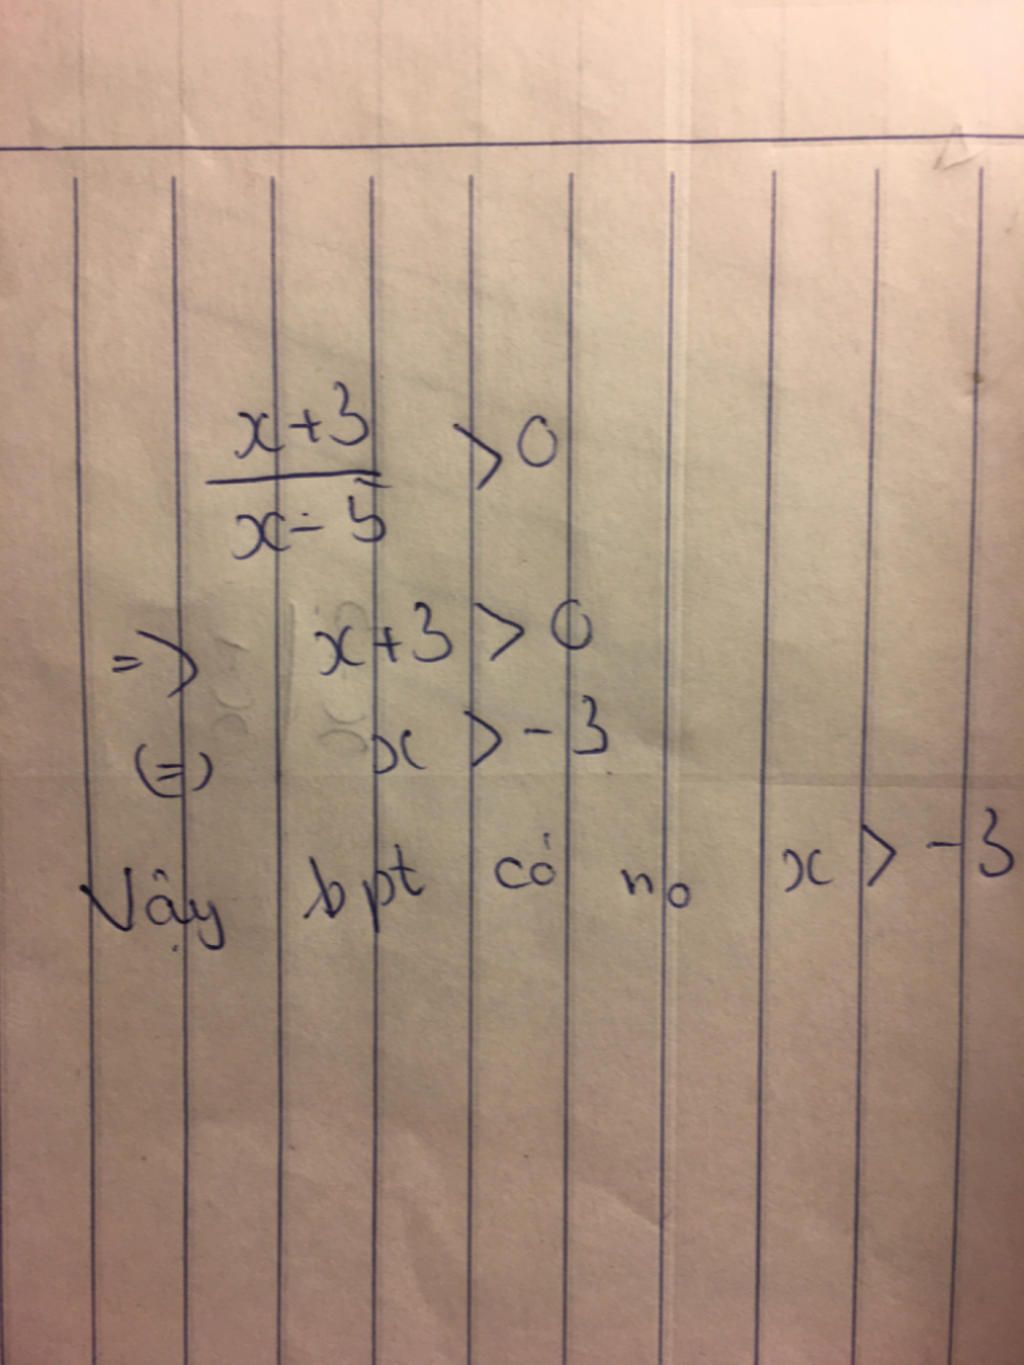 x+3
x-5 > 0
=> x+3 > 0
(=) x > -3
Vậy bpt có no x > -3